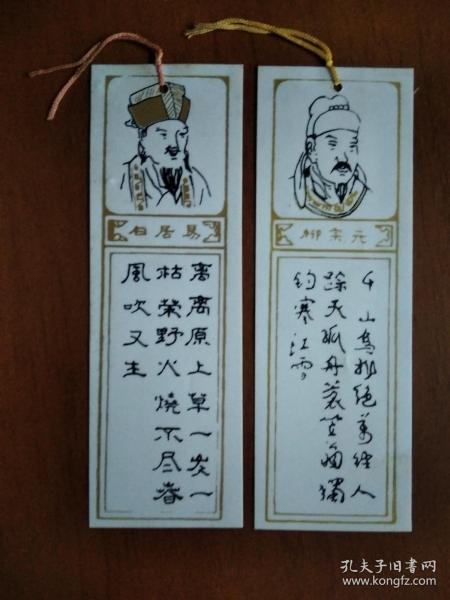 白居易
离离原上草一岁一
枯荣野火燒不尽春
風吹又生
柳宗元
千山鸟飛絕萬徑人
踪灭孤舟蓑笠翁獨
钓寒江雪
孔夫子旧书网
www.kongfz.com